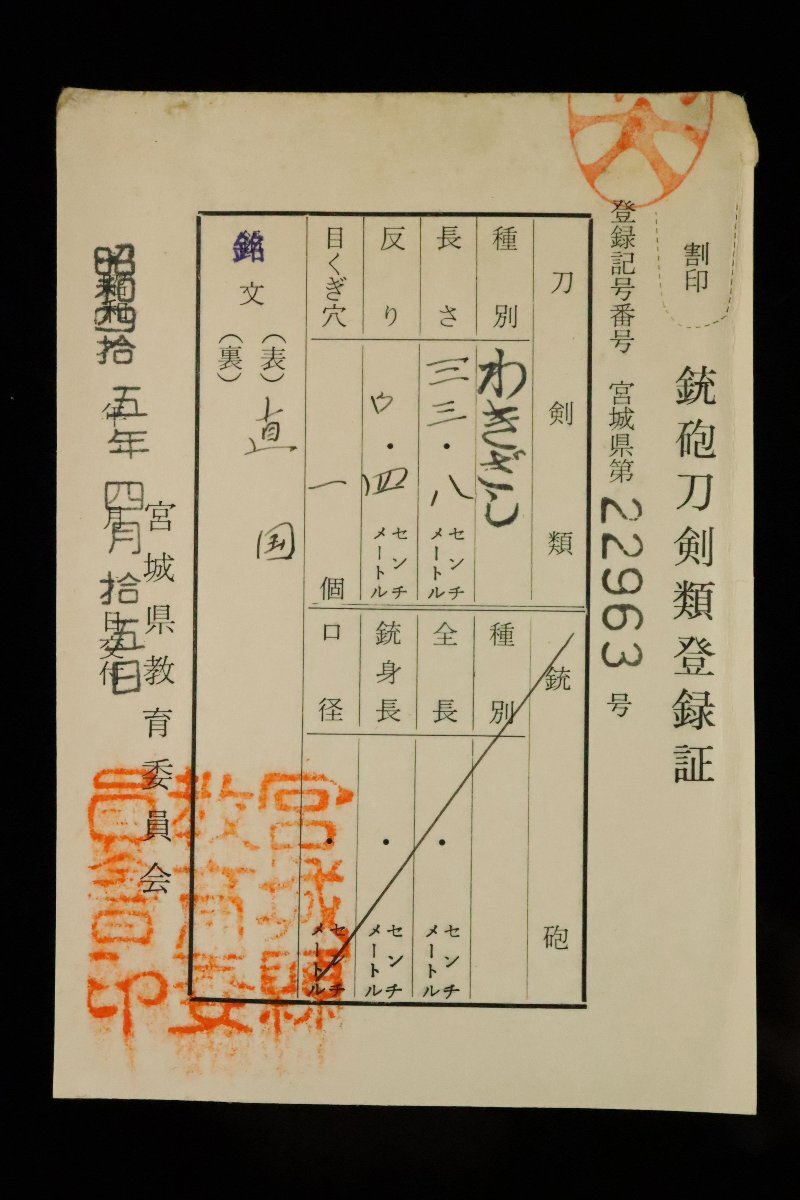 割印
銃砲刀剣類登録証
登録記号番号 宮城県第22963号
刀剣類
種別 わきざし
長さ 三三・八 センチメートル
反り 〇・四 センチメートル
目くぎ穴 一個
銃砲
種別
全長 ・ センチメートル
銃身長 ・ センチメートル
口径 ・ センチメートル
銘文
(表) 直国
(裏)
昭和四拾五年四月拾五日交付
宮城県教育委員会
宮城縣
教育委
員会印